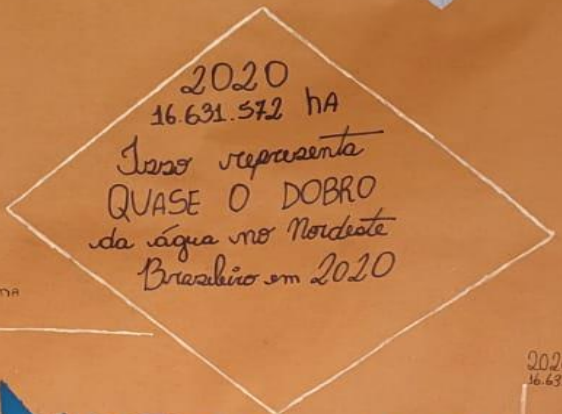 2020
16.631.572 hA
Isso representa
QUASE O DOBRO
da água no Nordeste
Brasileiro em 2020